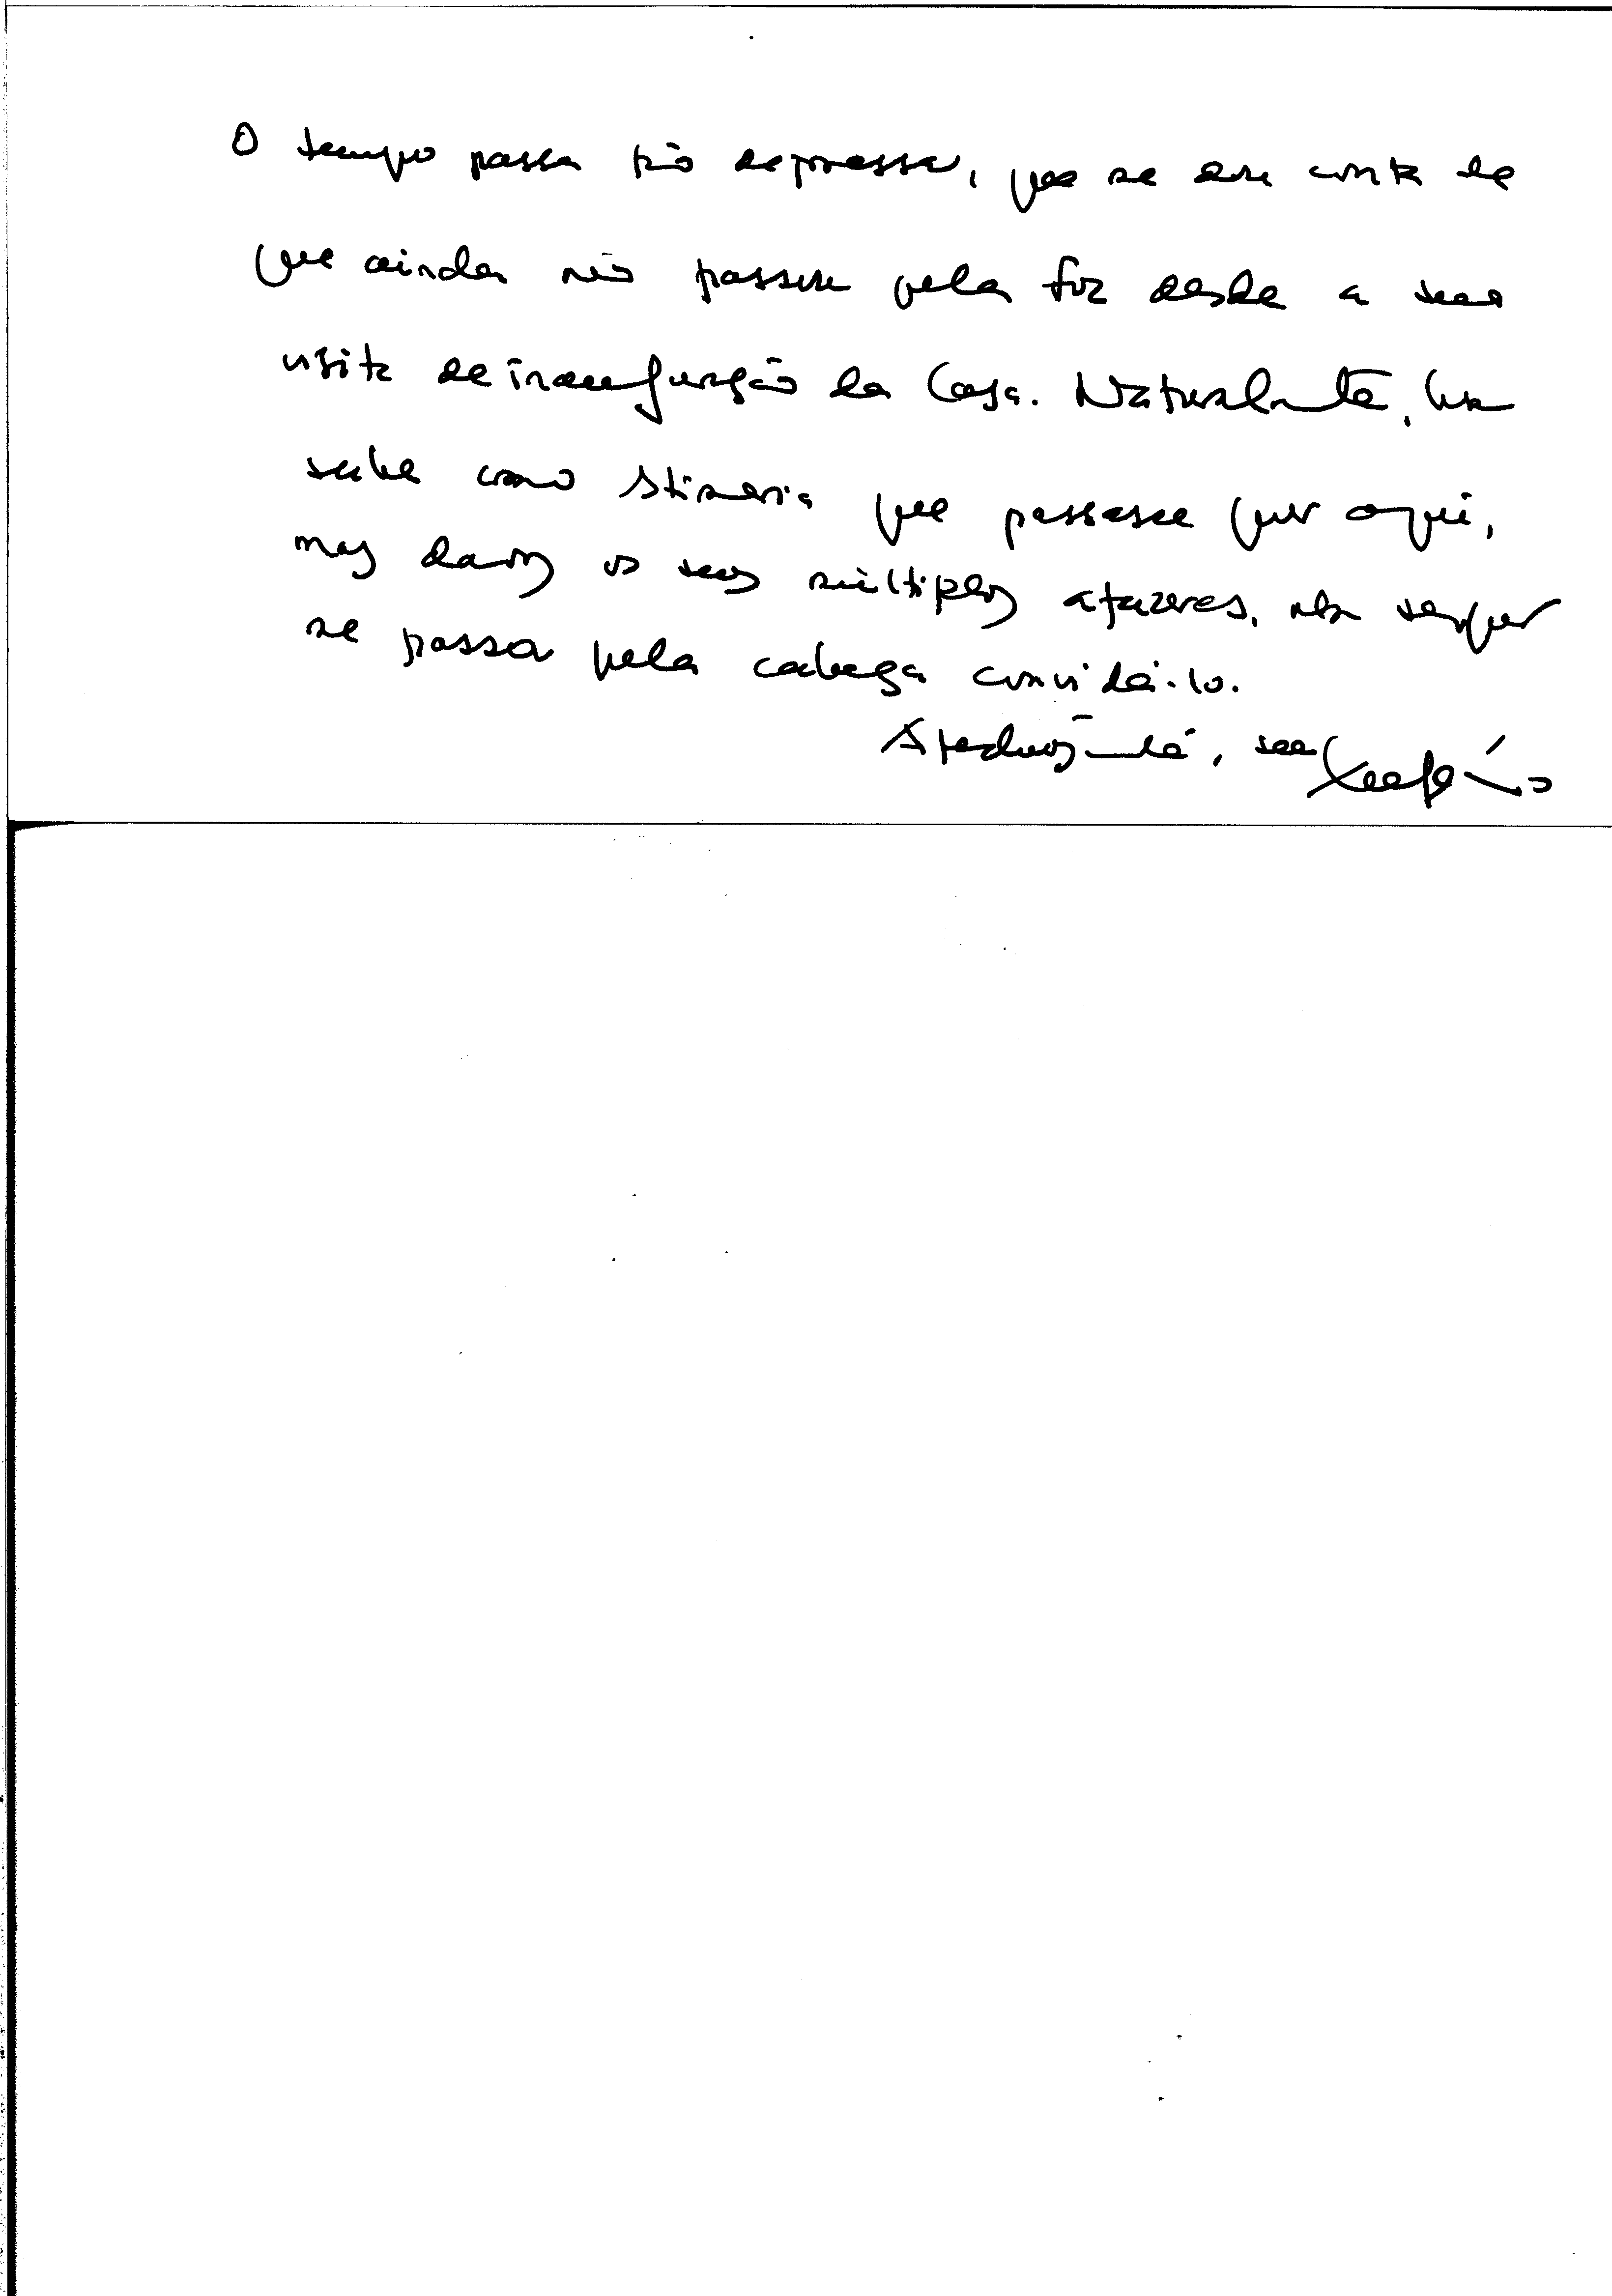 O tempo passa tão depressa, que me dou conta de
que ainda não passou pela Foz desde a sua
visita de inauguração da Casa. Naturalmente, bem
sabe como stimaria que passasse por aqui,
mas dados os seus múltiplos afazeres, nem sequer
me passa pela cabeça convidá-lo.
Afectuosamente, seu